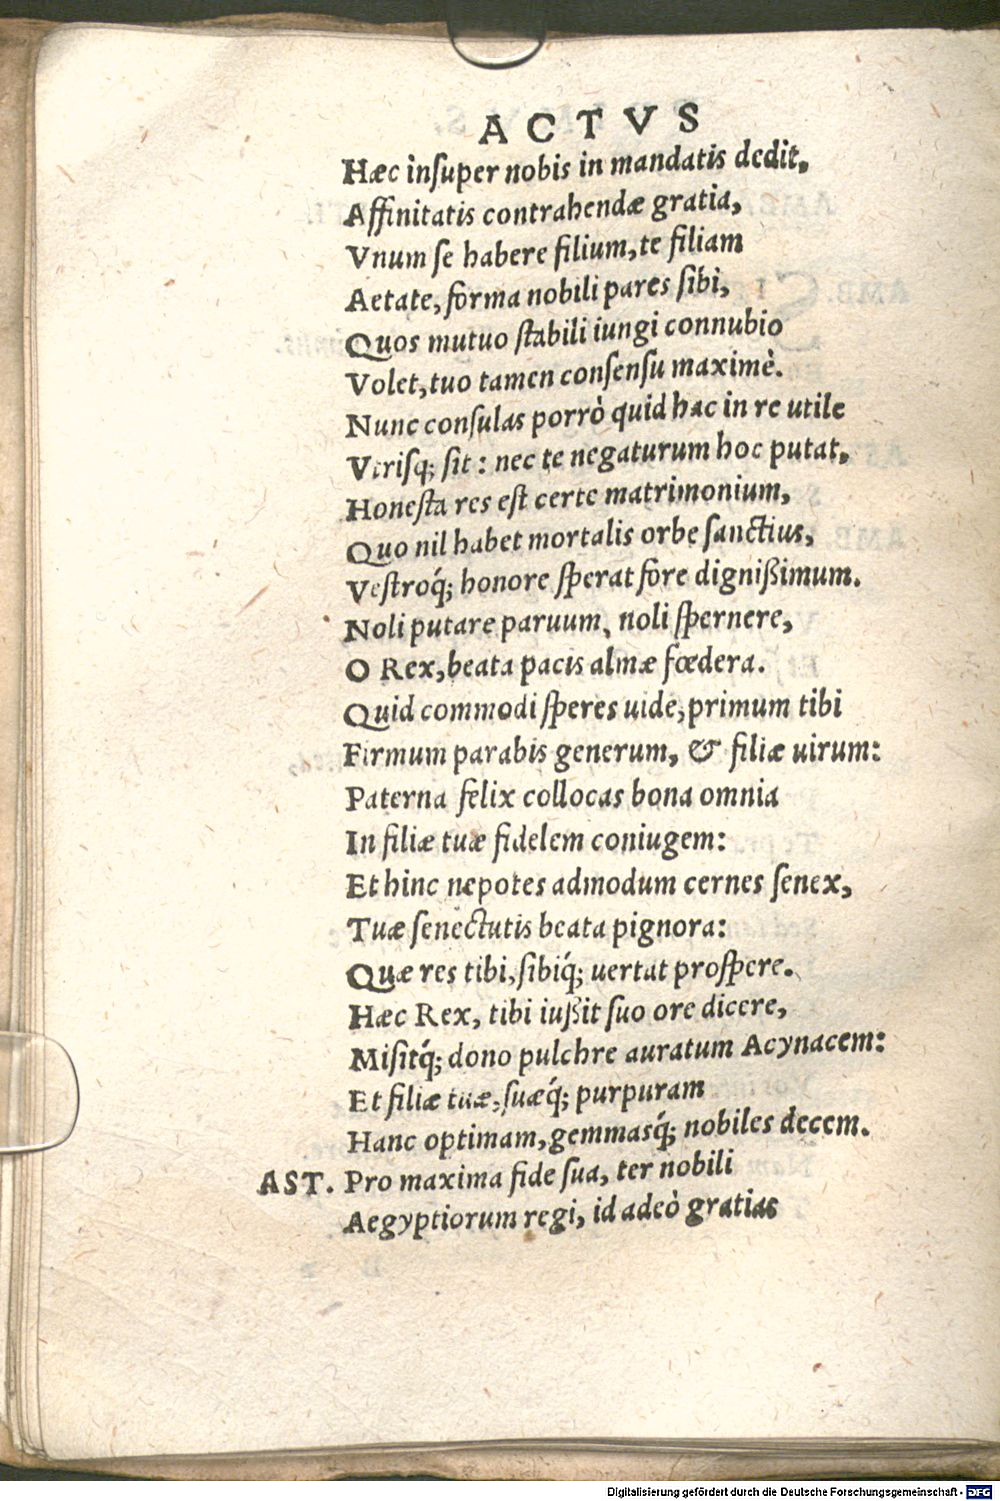 ACTVS
Hæc inſuper nobis in mandatis dedit,
Affinitatis contrahendæ gratia,
Vnum ſe habere filium, te filiam
Aetate, forma nobili pares ſibi,
Quos mutuo ſtabili iungi connubio
Volet, tuo tamen conſenſu maximè.
Nunc conſulas porrò quid hac in re utile
Vtriſq; ſit: nec te negaturum hoc putat,
Honeſta res eſt certe matrimonium,
Quo nil habet mortalis orbe ſanctius,
Veſtroq́; honore ſperat fore digniſſimum.
Noli putare paruum, noli ſpernere,
O Rex, beata pacis almæ fœdera.
Quid commodi ſperes uide, primum tibi
Firmum parabis generum, & filiæ uirum:
Paterna felix collocas bona omnia
In filiæ tuæ fidelem coniugem:
Et hinc nepotes admodum cernes ſenex,
Tuæ ſenectutis beata pignora:
Quæ res tibi, ſibiq́; uertat proſpere.
Hæc Rex, tibi iuſſit ſuo ore dicere,
Miſitq́; dono pulchre auratum Acynacem:
Et filiæ tuæ, ſuæq́; purpuram
Hanc optimam, gemmasq́; nobiles decem.
AST. Pro maxima fide ſua, ter nobili
Aegyptiorum regi, id adeò gratias
Digitalisierung gefördert durch die Deutsche Forschungsgemeinschaft - DFG